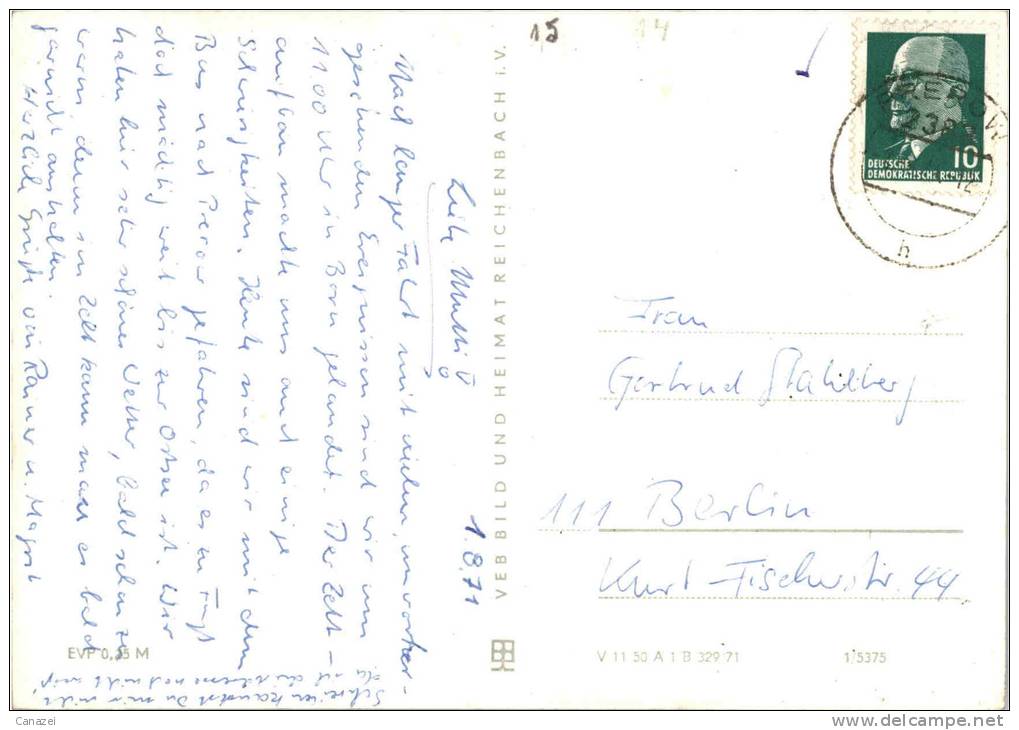 15
14
BREROW
DEUTSCHE
DEMOKRATISCHE REPUBLIK
10
h
1.8.71
Liebe Mutti!
Nach langer Fahrt mit vielen, unvorher-
gesehenden Ereignissen sind wir um
11.00 Uhr in Born gelandet. Der Zelt-
aufbau machte uns auch einige
Schwierigkeiten. Heute sind wir mit dem
Bus nach Prerow gefahren, da es zu Fuß
doch mächtig weit bis zur Ostsee ist. Wir
haben hier sehr schönes Wetter, bald schon zu
warm, denn im Zelt kann man es bald
garnicht aushalten.
Herzliche Grüße von Rainer u. Margrit
Schreiben kannst Du mir nicht,
da ich die Adresse noch nicht weiß
VEB BILD UND HEIMAT REICHENBACH i. V.
Frau
Gertrud Stahlberg
111 Berlin
Kurt-Fischerstr. 44
EVP 0,25 M
V 11 50 A 1 B 329/71
1/5375
Canazei
http://www.delcampe.net